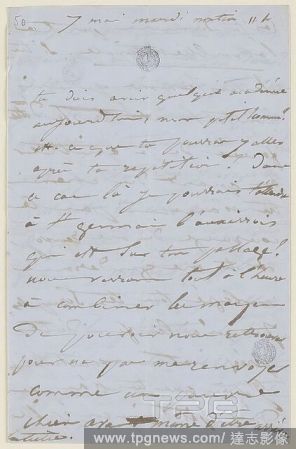 50
7 mai mardi matin 11 h
tu dois avoir quelque académie
aujourd'hui mon petit homme
est-ce que tu pourras y aller
après ta répétition? Dans
ce cas là je pourrais t'attendre
à St Germain l'auxerrois
qui est sur ton passage.
nous verrons tout à l'heure
à combiner le moyen
De jouir de nous
pour ne pas me renvoyer
comme un pauvre
chien à la d'être
TPG
www.tpgnews.com / 達志影像